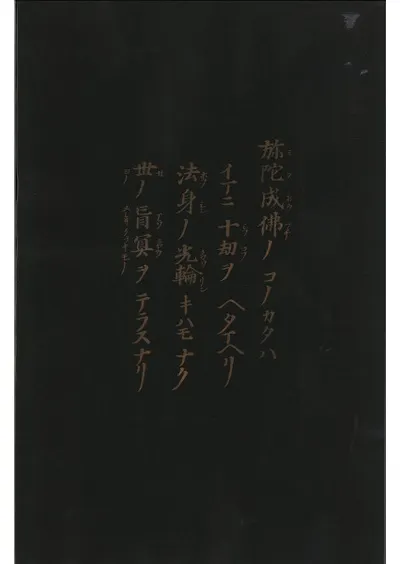 弥陀成佛ノコノカタハ
イマニ十劫ヲヘタマヘリ
法身ノ光輪キハモナク
世ノ盲冥ヲテラスナリ